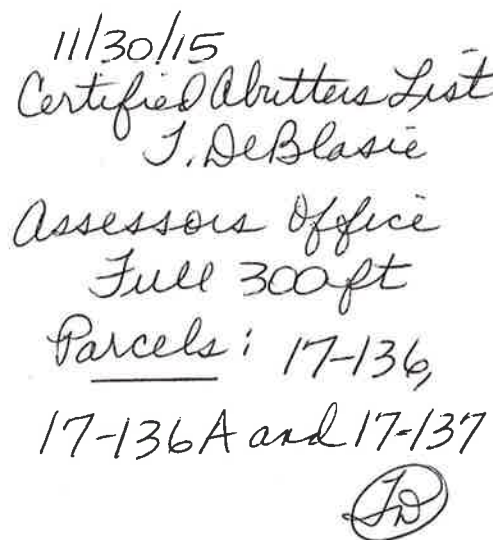 11/30/15
Certified Abutters List
T. DeBlasie
Assessors Office
Full 300 ft
Parcels: 17-136,
17-136A and 17-137
TD